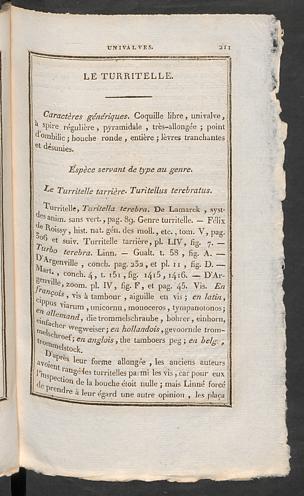 UNIVALVES. 211
LE TURRITELLE.
Caractères génériques. Coquille libre, univalve,
à spire régulière, pyramidale, très-allongée ; point
d'ombilic ; bouche ronde, entière ; lèvres tranchantes
et désunies.
Espèce servant de type au genre.
Le Turritelle tarrière. Turitellus terebratus.
Turritelle, Turitella terebra. De Lamarck, syst.
des anim. sans vert., pag. 89. Genre turritelle. — Félix
de Roissy, hist. nat. gén. des moll., etc., tom. V, pag.
306 et suiv. Turritelle tarrière, pl. LIV, fig. 7. —
Turbo terebra. Linn. — Gualt. t. 58, fig. A. —
D'Argenville, conch. pag. 232, et pl. 11, fig. D. —
Mart., conch. 4, t. 151, fig. 1415, 1416. — D'Ar-
genville, zoom. pl. IV, fig. F, et pag. 45. Vis. En
françois, vis à tambour, aiguille en vis ; en latin,
cippus viarum, unicornu, monoceros, tympanotonos ;
en allemand, die trommelschraube, bohrer, einhorn,
einfacher wegweiser ; en hollandois, gevoornde trom-
melschroef ; en anglois, the tamboers peg ; en belg.,
trommelstock.
D'après leur forme allongée, les anciens auteurs
avoient rangé les turritelles parmi les vis, car pour eux
l'inspection de la bouche étoit nulle ; mais Linné forcé
de prendre à leur égard une autre opinion, les plaça